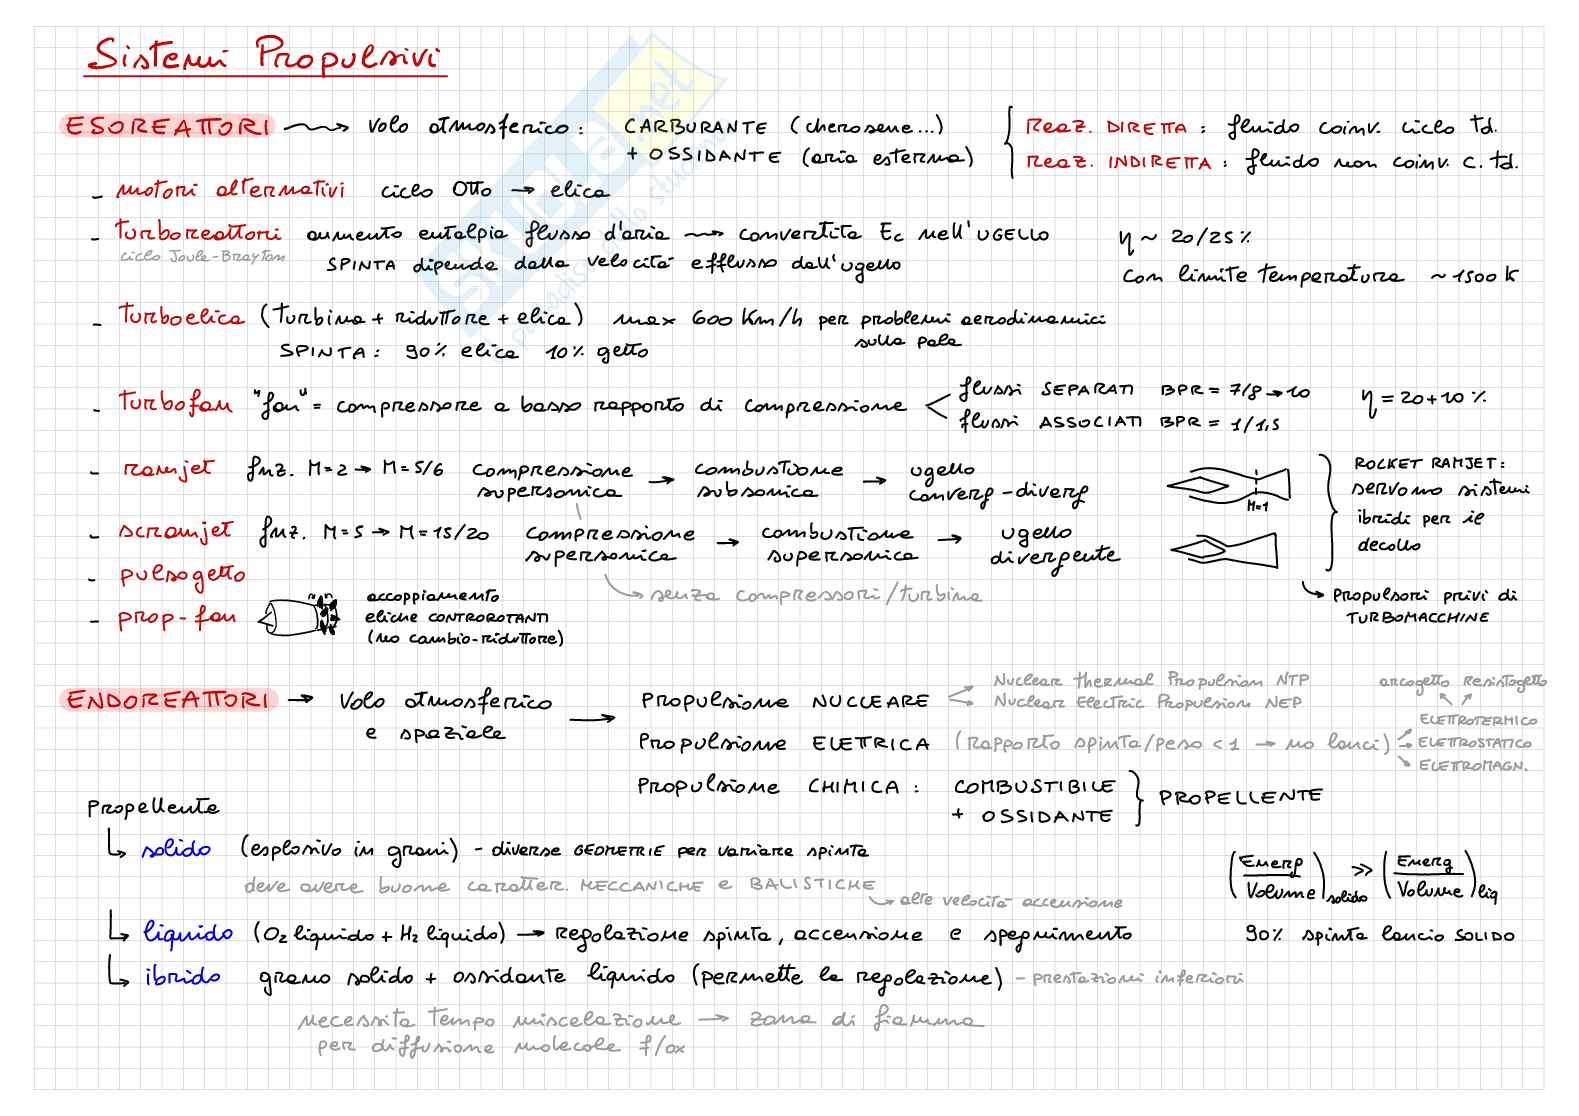 Sistemi Propulsivi
ESOREATTORI → Volo atmosferico: CARBURANTE (cherosene...)
+ OSSIDANTE (aria esterna)
Reaz. DIRETTA: fluido coinv. ciclo td.
Reaz. INDIRETTA: fluido non coinv. c. td.
- motori alternativi ciclo Otto → elica
- turboreattori aumento entalpia flusso d'aria → convertita Ec nell'UGELLO
ciclo Joule-Brayton SPINTA dipende dalla velocità efflusso dall'ugello
η ~ 20/25%
con limite temperatura ~1500 K
- turboelica (turbina + riduttore + elica) max 600 Km/h per problemi aerodinamici
sulla pala
SPINTA: 90% elica 10% getto
- turbofan "fan" = compressore a basso rapporto di compressione
flussi SEPARATI BPR = 7/8 → 10
flussi ASSOCIATI BPR = 1/1,5
η = 20+10%
- ramjet fnz. M=2 → M=5/6 compressione supersonica → combustione subsonica → ugello converg-diverg
M=1
- scramjet fnz. M=5 → M=15/20 compressione supersonica → combustione supersonica → ugello divergente
ROCKET RAMJET:
servono sistemi
ibridi per il
decollo
- pulsogetto
→ senza compressori/turbina
→ Propulsori privi di
TURBOMACCHINE
- prop-fan accoppiamento
eliche CONTROROTANTI
(no cambio-riduttore)
ENDOREATTORI → Volo atmosferico
e spaziale
→ Propulsione NUCLEARE
Nuclear thermal Propulsion NTP
Nuclear Electric Propulsion NEP
arcogetto Resistogetto
Propulsione ELETTRICA (rapporto spinta/peso <1 → no lanci)
ELETTROTERMICO
ELETTROSTATICO
ELETTROMAGN.
Propulsione CHIMICA: COMBUSTIBILE
+ OSSIDANTE } PROPELLENTE
Propellente
↳ solido (esplosivo in grani) - diverse GEOMETRIE per variare spinta
deve avere buone caratter. MECCANICHE e BALISTICHE
↳ alte velocità accensione
(Energ/Volume)solido >> (Energ/Volume)liq
↳ liquido (O2 liquido + H2 liquido) → regolazione spinta, accensione e spegnimento
90% spinta lancio SOLIDO
↳ ibrido grano solido + ossidante liquido (permette la regolazione) - prestazioni inferiori
necessita tempo miscelazione → zona di fiamma
per diffusione molecole f/ox